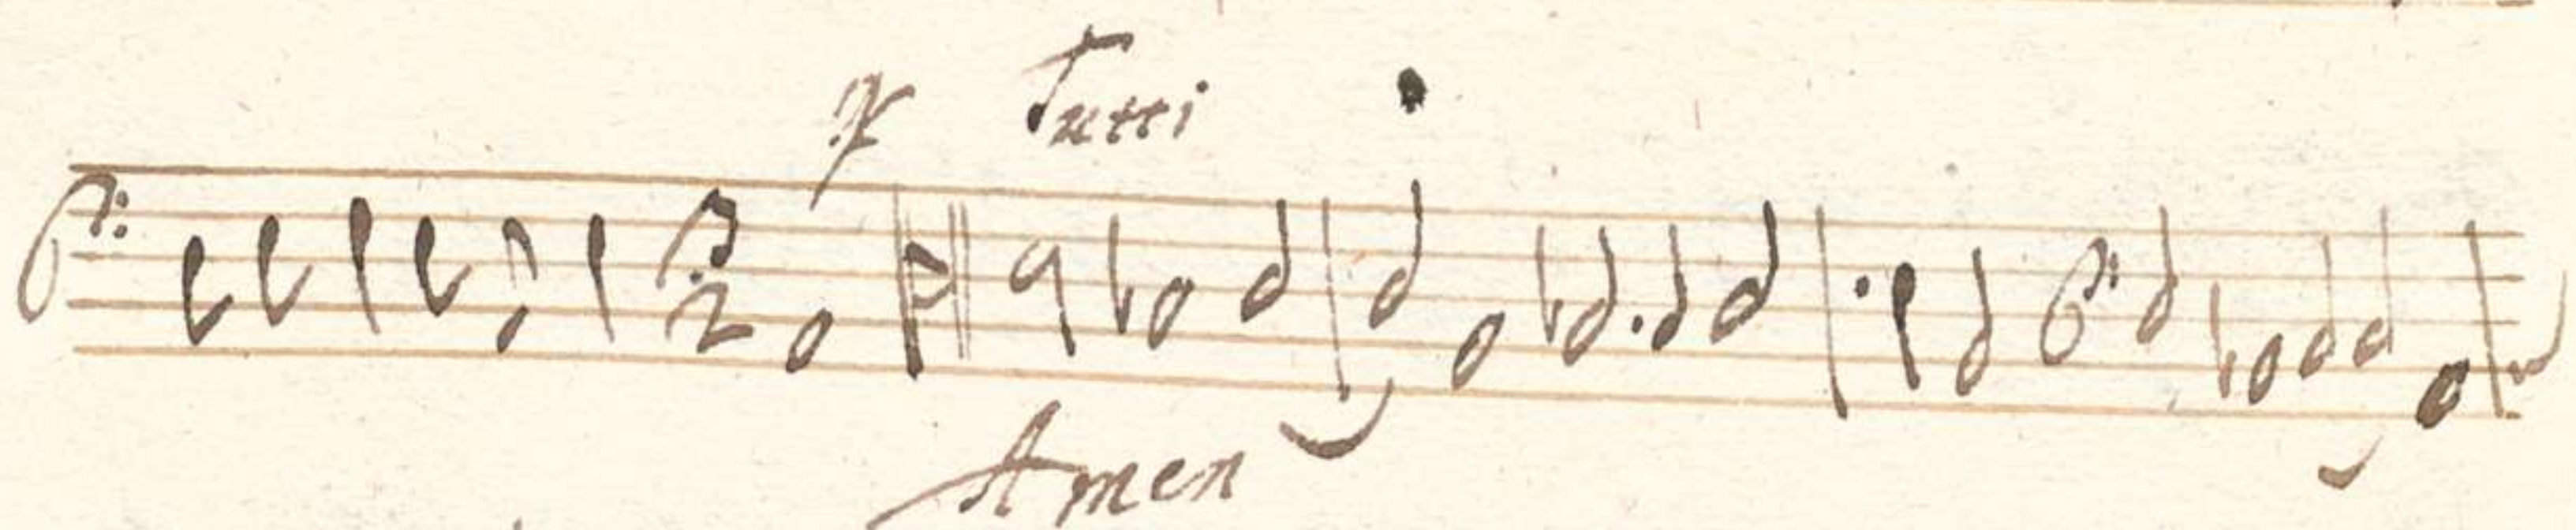 Tutti
2
Amen